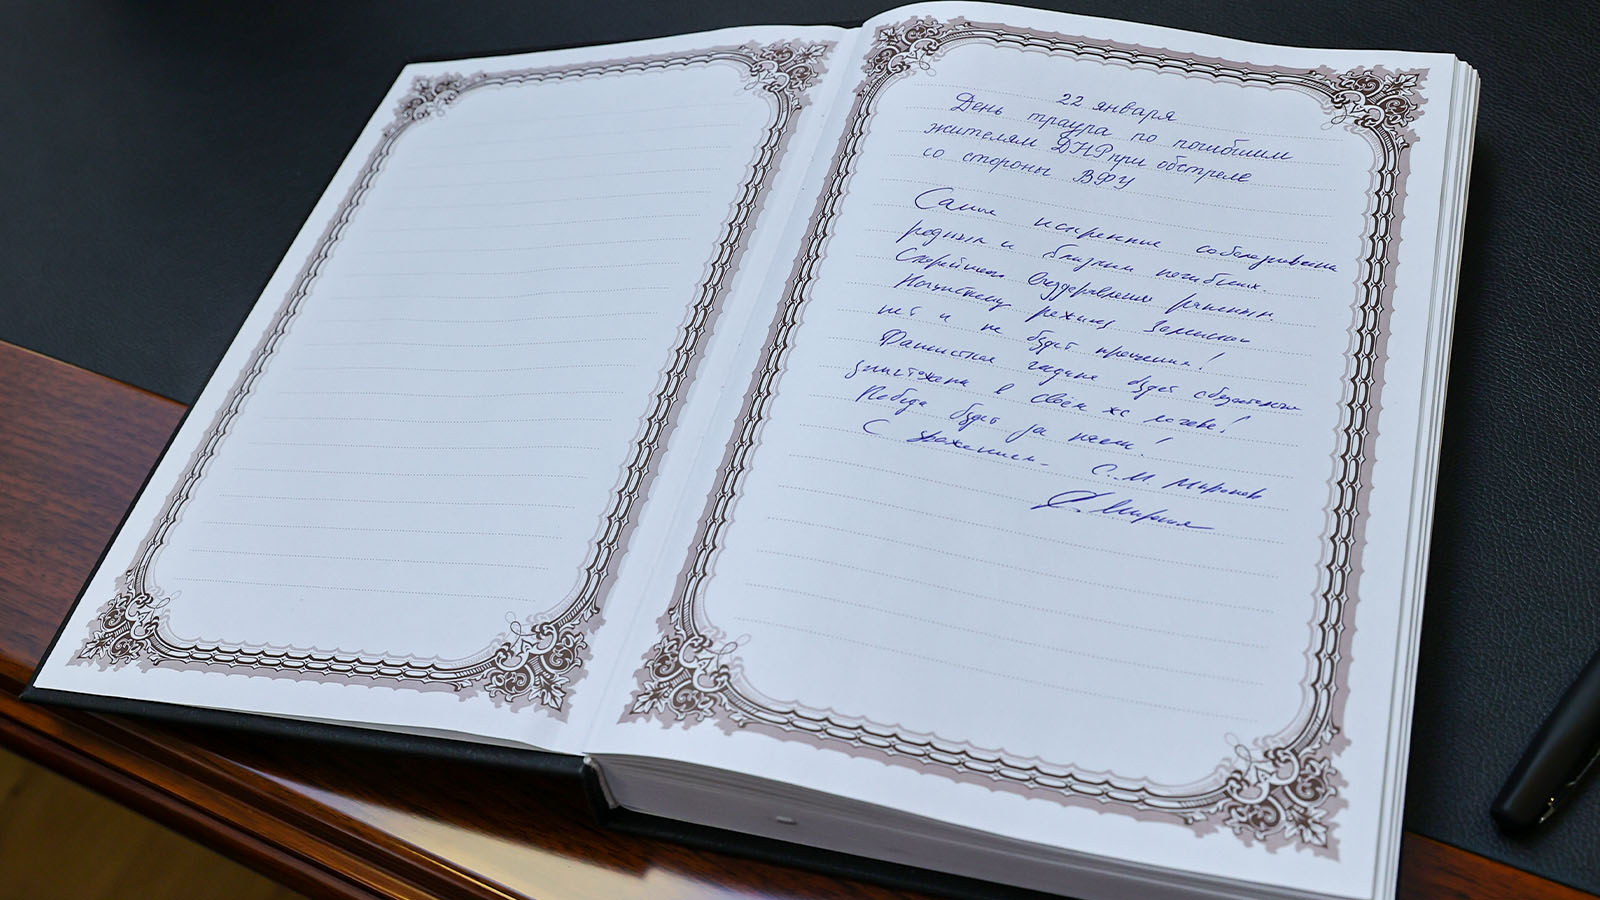 22 января
День траура по погибшим
жителям ДНР при обстреле
со стороны ВФУ
Самые искренние соболезнования
родным и близким погибших.
Скорейшего выздоровления раненым.
Нацистскому режиму Зеленского
нет и не будет прощения!
Фашистская гадина будет обязательно
уничтожена в своём же логове!
Победа будет за нами!
С уважением. С.М. Миронов